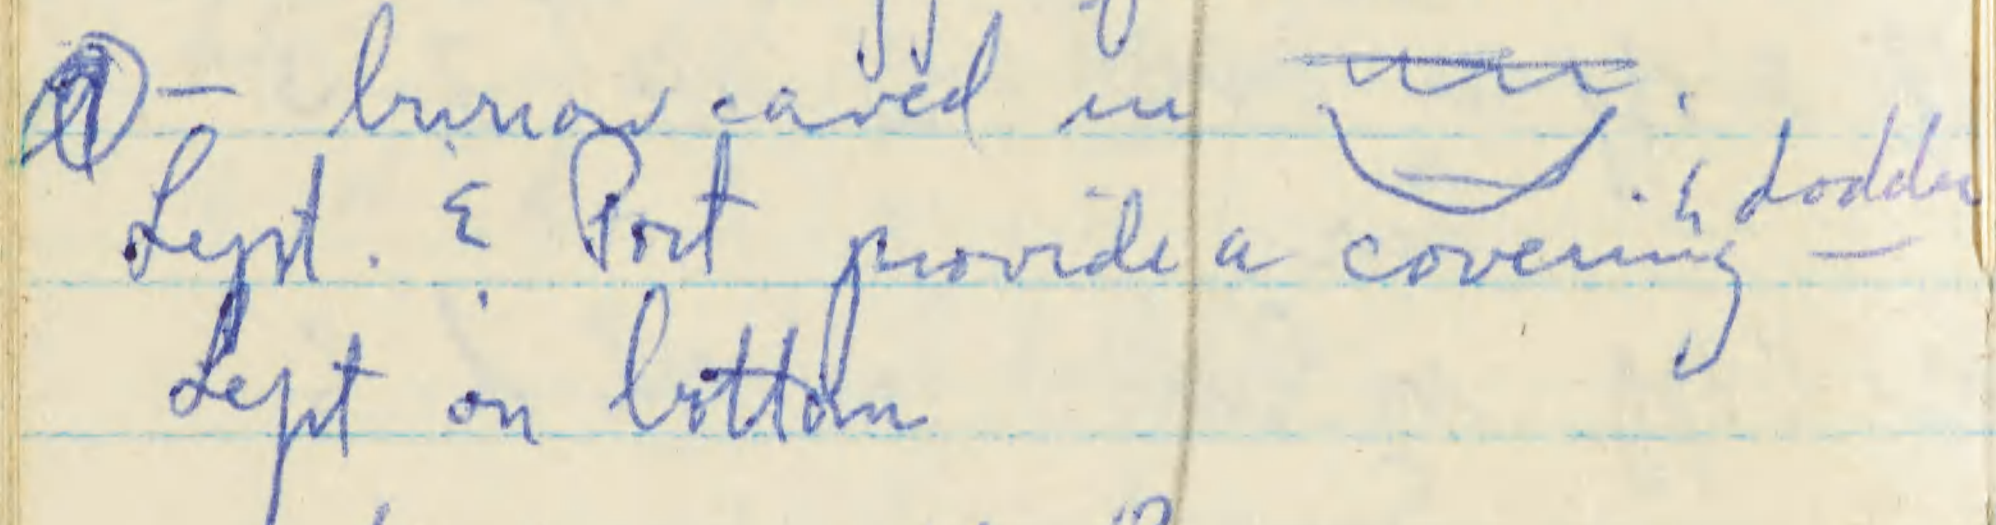 — burrow caved in
Lept. & Port provide a covering — & dodder
Lept on bottom